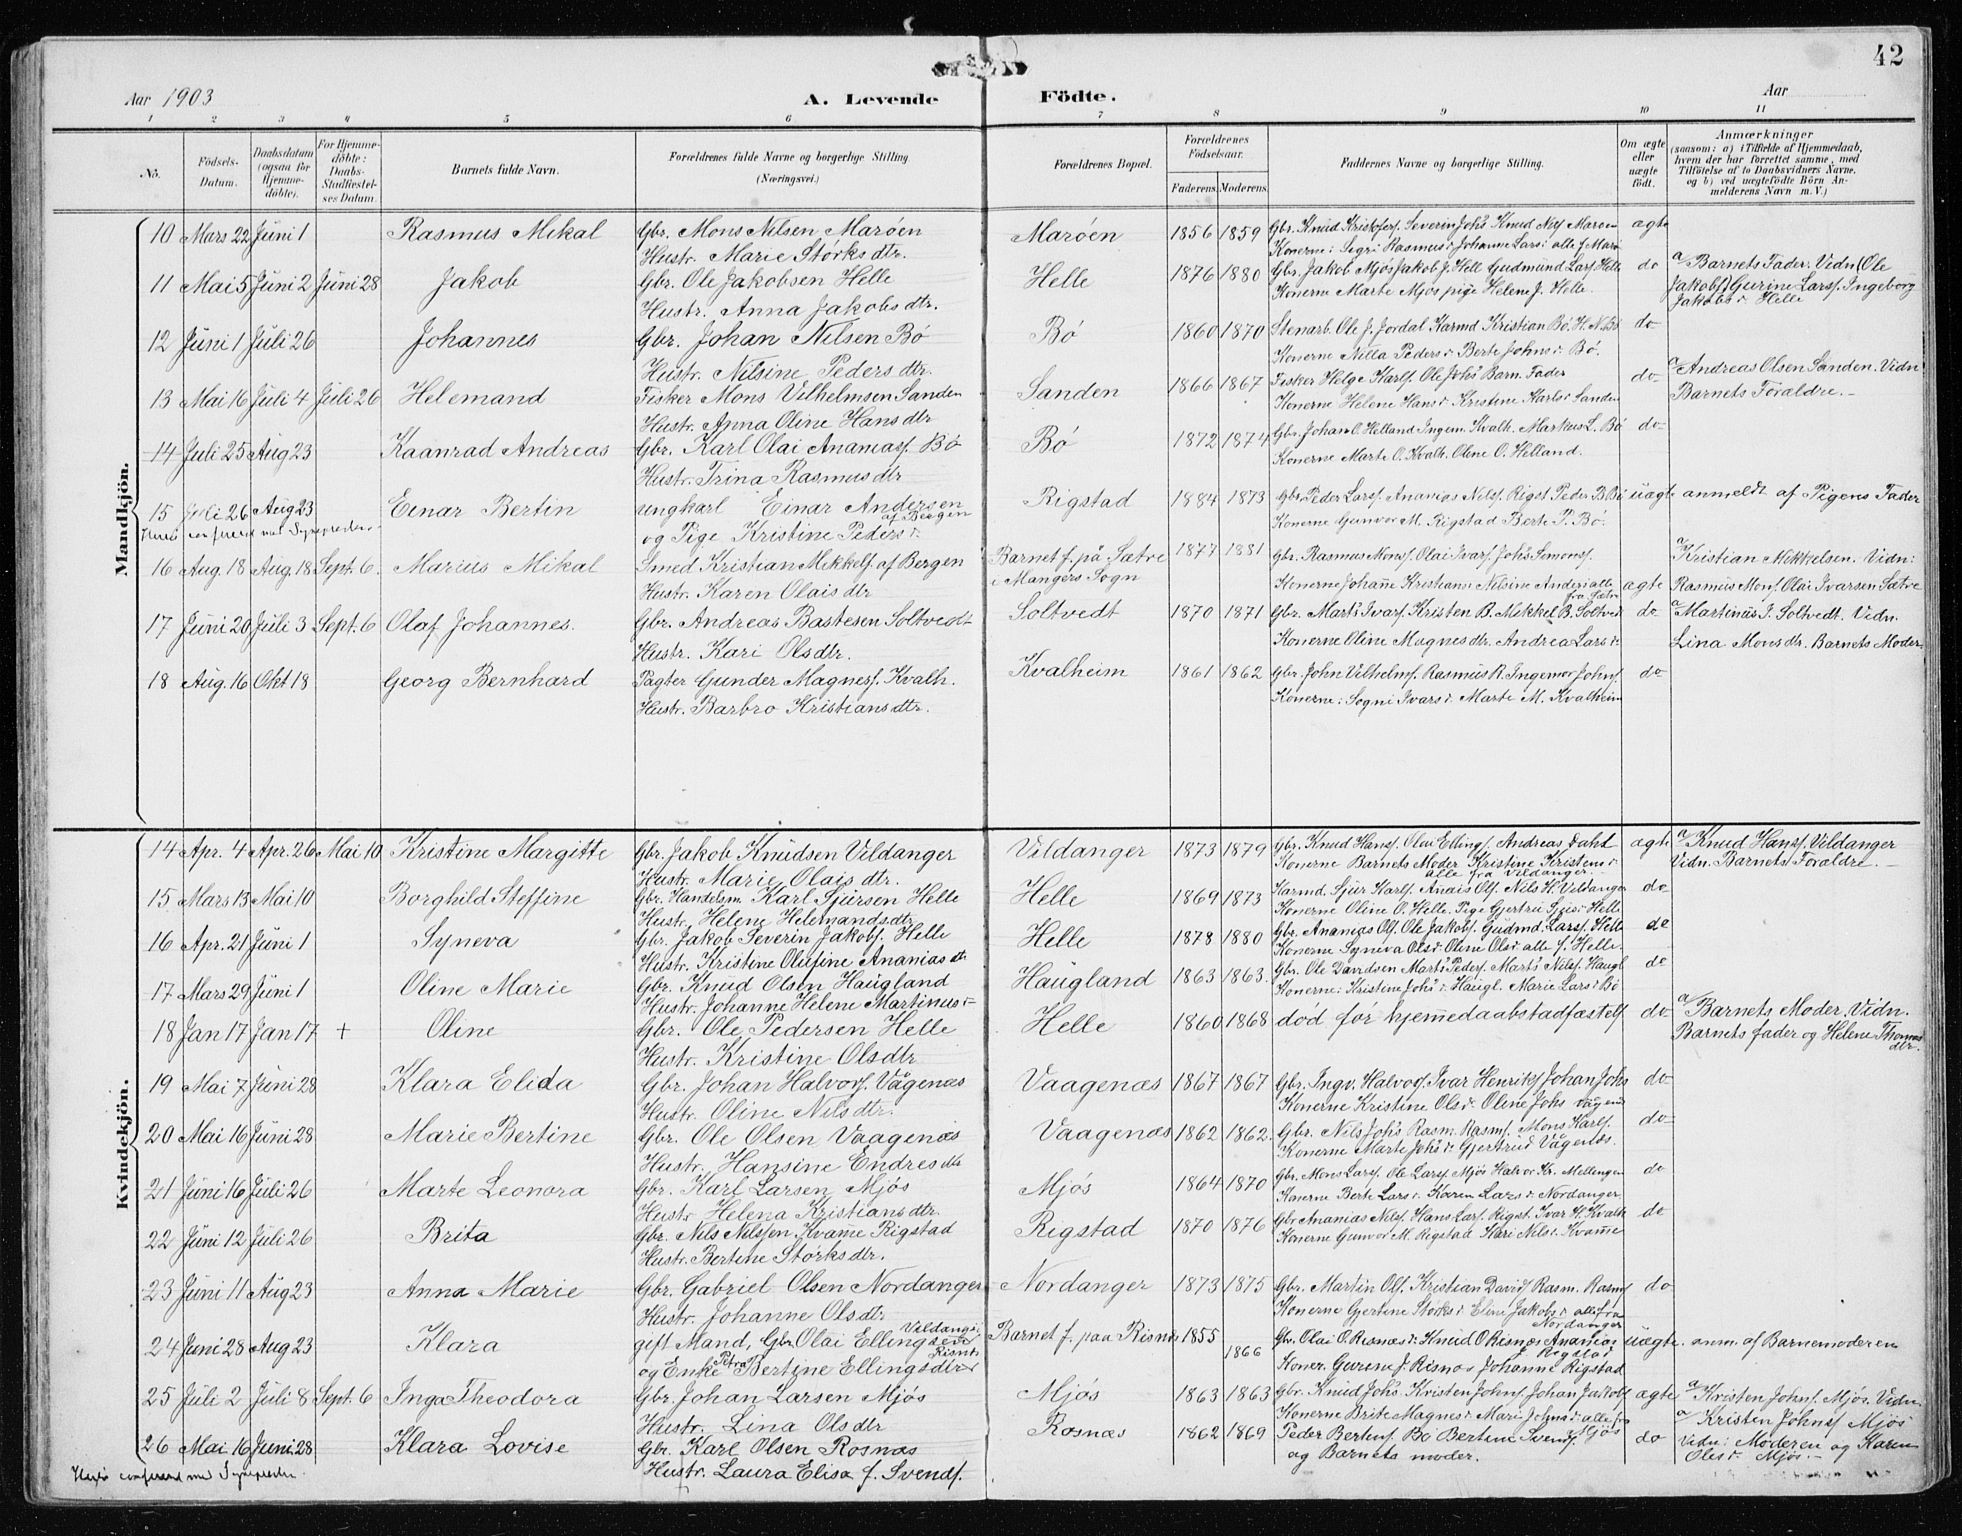 42
Aar 1903
A. Levende Födte.
Aar
1 2 3 4 5 6 7 8 9 10 11
No.
Födsels-Datum.
Daabsdatum (ogsaa for Hjemme-döbte).
For Hjemme-döbte: Daabs-Stadfæstel-ses Datum.
Barnets fulde Navn.
Forældrenes fulde Navne og borgerlige Stilling (Næringsvei.)
Forældrenes Bopæl.
Forældrenes Födselsaar.
Faderens. Moderens.
Faddernes Navne og borgerlige Stilling.
Om ægte eller uægte födt.
Anmærkninger (saasom: a) i Tilfælde af Hjemmedaab, hvem der har forrettet samme, med Tilföielse af to Daabsvidners Navne, og b) ved uægtefödte Börn An-melderens Navn m. V.)
Mandkjön.
10 Mars 22 Juni 1 Rasmus Mikal Gbr. Mons Nilsen Marøen Marøen 1856 1859 Gbr. Knud Kristofers. Severin Johs Knud Nils Marøen ægte
Hustr. Marie Størksdtr. Konerne: Sigri Rasmusd. Johanne Larsd. alle f. Marø
11 Mai 5 Juni 2 Juni 28 Jakob Gbr. Ole Jakobsen Helle Helle 1876 1880 Gbr. Jakob Mjøs Jakob J. Hell Gudmund Lars. Helle do a/ Barnets Fader. Vidn (Ole
Hustr. Anna Jakobsdtr. Konerne Marte Mjøs pige Helene J. Helle. Jakobs) Gurine Lars. Ingeborg
Jakobsd. Helle
12 Juni 1 Juli 26 Johannes Gbr. Johan Nilsen Bö Bö 1860 1870 Stenarb. Ole J. Jordal Karmd Kristian Bö. H. N. Bö do
Hustr. Nilsine Pedersdtr. Konerne Nilla Pedersd. Berte Johnsd. Bö.
13 Mai 16 Juli 4 Juli 26 Helemand Fisker Mons Vilhelmsen Sanden Sanden 1866 1867 Fisker Helge Karls. Ole Johs Barn. Fader do a/ Andreas Olsen Sanden. Vidn
Hustr. Anna Oline Hansdtr Konerne Helene Hansd. Kristine Karlsd. Sanden Barnets Forældre.
14 Juli 25 Aug 23 Kaanrad Andreas Gbr. Karl Olai Ananias. Bö Bö 1872 1874 Gbr. Johan O. Helland Ingem. Kvalh. Markus L. Bö do
Hustr. Trina Rasmusdtr Konerne Marte O. Kvalh. Oline O. Helland.
15 Juli 26 Aug 23 Einar Bertin ungkarl Einar Andersen af Bergen Rigstad 1884 1873 Gbr. Peder Lars. Ananias Nils. Rigst. Peder B. Bö uægte anmeldt af Pigens Fader
og Pige Kristine Pedersd. Konerne Gunvor M. Rigstad Berte P. Bö.
16 Aug. 18 Aug. 18 Sept. 6. Marius Mikal Smed Kristian Mikkels. af Bergen Barnet f. på Sætre i Mangers Sogn 1877 1881 Gbr. Rasmus Mons. Olai Ivars. Johs Simons. a/ Kristian Mikkelsen. Vidn:
Hustr. Karen Olaisdtr Konerne Johanne Kristiansd. Nilsine Andersd. alle fra Sætre ægte Rasmus Mons. Olai Ivarsen Sætre
17 Juni 20 Juli 3 Sept. 6 Olaf Johannes. Gbr. Andreas Bastesen Soltvedt Soltvedt 1870 1871 Gbr. Marts Ivars. Kristen B. Mikkel B. Soltved do a/ Martinus J. Soltvedt. Vidn.
Hustr. Kari Olsdtr. Konerne Oline Magnesdtr. Andrea Larsd. Lina Monsdtr. Barnets Moder
18 Aug. 16 Okt 18 Georg Bernhard Pagter Gunder Magnes. Kvalh. Kvalheim 1861 1862 Gbr. John Vilhelms. Rasmus R. Ingemor Johns. do
Hustr. Barbro Kristiansdtr. Konerne: Sogni Ivarsd. Marte M. Kvalheim
Kvindekjön.
14 Apr. 4 Apr. 26 Mai 10 Kristine Margitte Gbr. Jakob Knudsen Vildanger Vildanger 1873 1879 Gbr. Knud Hans. Olai Ellings. Andreas Daht ægte a/ Knud Hans. Vildanger
Hustr. Marie Olaisdtr. Konerne Barnets Moder Kristine Kristensd. alle fra Vildanger. Vidn. Barnets Forældre.
15 Mars 13 Mai 10 Borghild Steffine Gbr. Handelsm. Karl Sjursen Helle Helle 1869 1873 Karmd. Sjur Karls. Anais Ols. Nils H. Vildanger do
Hustr. Helene Helemandsdtr Konerne Oline O. Helle. Pige Gjertru Sjursd. Helle
16 Apr. 21 Juni 1 Syneva Gbr. Jakob Severin Jakobs. Helle Helle 1878 1880 Gbr. Ananias Ols. Ole Jakobs. Gudmd. Lars. Helle do
Hustr. Kristine Olufine Ananiasdtr Konerne Syneva Olsd. Oline Olsd. alle f. Helle.
17 Mars 29 Juni 1 Oline Marie Gbr. Knud Olsen Haugland Haugland 1863 1863. Gbr. Ole Davidsen Marts Peders. Marts Nils. Haugl. do
Hustr. Johanne Helene Martinusd. Konerne: Kristine Johsd. Haugl. Marie Larsd. Bö
18 Jan 17 Jan 17 + Oline Gbr. Ole Pedersen Helle Helle 1860 1868 død før hjemmedaabstadfæstels do a/ Barnets Moder. Vidn.
Hustr. Kristine Olsdtr. Barnets fader og Helene Thomasdtr.
19 Mai 7 Juni 28 Klara Elida Gbr. Johan Halvors. Vågenæs Vaagenæs 1867 1867 Gbr. Ingv. Halvors. Ivar Henriks. Johan Johs do
Hustr. Oline Nilsdtr. Konerne Kristine Olsd. Oline Johs Vågenæs
20 Mai 16 Juni 28 Marie Bertine Gbr. Ole Olsen Vaagenæs Vaagenæs 1862 1862. Gbr. Nils Johs. Rasm. Rasms. Mons Karls. do
Hustr. Hansine Endresdtr Konerne Marte Johsd. Gjertrud Vågenæs.
21 Juni 16 Juli 26 Marte Leonora Gbr. Karl Larsen Mjøs Mjøs 1864 1870 Gbr. Mons Lars. Ole Lars. Mjøs Halvor Kr. Mellingen do
Hustr. Helena Kristiansdtr. Konerne Berte Larsd. Karen Larsd. Nordanger.
22 Juni 12 Juli 26 Brita Gbr. Nils Nilssen Kvamme Rigstad Rigstad 1870 1876 Gbr Ananias Nils. Hans Lars. Rigst. Ivar H. Kvalh do
Hustr. Bertine Størksdtr. Konerne Gunvor M. Rigstad Kari Nilsd. Kvamme
23 Juni 11 Aug 23 Anna Marie Gbr. Gabriel Olsen Nordanger Nordanger 1873 1875 Gbr. Martin Ols. Kristian David. Rasm. Rasm. do
Hustr. Johanne Olsdtr Konerne Gjertine Størksd. Eline Jakobsd. alle fra Nordanger
24 Juni 28 Aug 23 Klara gift Mand, Gbr. Olai Ellingsen Vildang. Barnet f. paa Risnes 1855 1866 Gbr. Olai O. Risnæs. Knud O. Risnæs Ananias J. Rigstad uægte. anm. af Barnemoderen
og Enke Petra Bertine Ellingsdtr Risnes Koner. Gurine J. Risnæs Johanne Rigstad
25 Juli 2 Juli 8 Sept. 6 Inga Theodora Gbr. Johan Larsen Mjøs Mjøs 1863 1863 Gbr. Knud Johs. Kristen Johns. Johan Jakobs. ægte a/ Kristen Johns. Mjøs. Vidn.
Hustr. Lina Olsdtr Konerne Brite Magnesd. Mari Johnsd. alle fra Mjøs a/ Kristen Johns. Mjøs
26 Mai 16 Juni 28 Klara Lovise Gbr. Karl Olsen Rosnæs Rosnæs 1862 1869 Peder Bertens. Bö Bertine Svends. do Vidn: Moderen og Karen
Hustr. Laura Elisa f. Svends. og Barnets moder. Olesd. Mjøs.